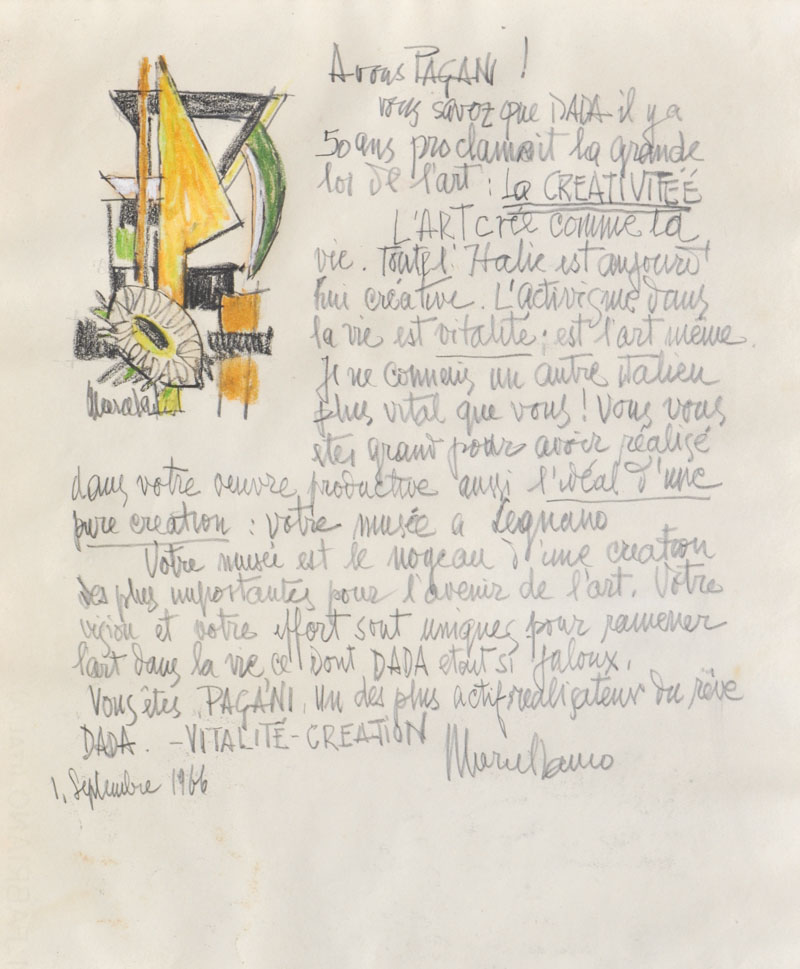 A vous PAGANI !
vous savez que DADA il y a
50 ans proclamait la grande
loi de l'art : La CREATIVITÉE
L'ART crée comme la
vie. Toute l'Italie est aujourd'
hui créative. L'activisme dans
la vie est vitalité ; est l'art même.
Je ne connais un autre italien
plus vital que vous ! Vous vous
etes grand pour avoir réalisé
dans votre oeuvre productive aussi l'idéal d'une
pure creation : votre musée a Legnano
Votre musée est le noyeau d'une creation
des plus importantes pour l'avenir de l'art. Votre
vision et votre effort sont uniques pour ramener
l'art dans la vie, ce dont DADA etait si jaloux.
Vous êtes PAGANI, un des plus actif realisateur du rêve
DADA. - VITALITÉ - CREATION
Marcel Janco
1, Septembre 1966